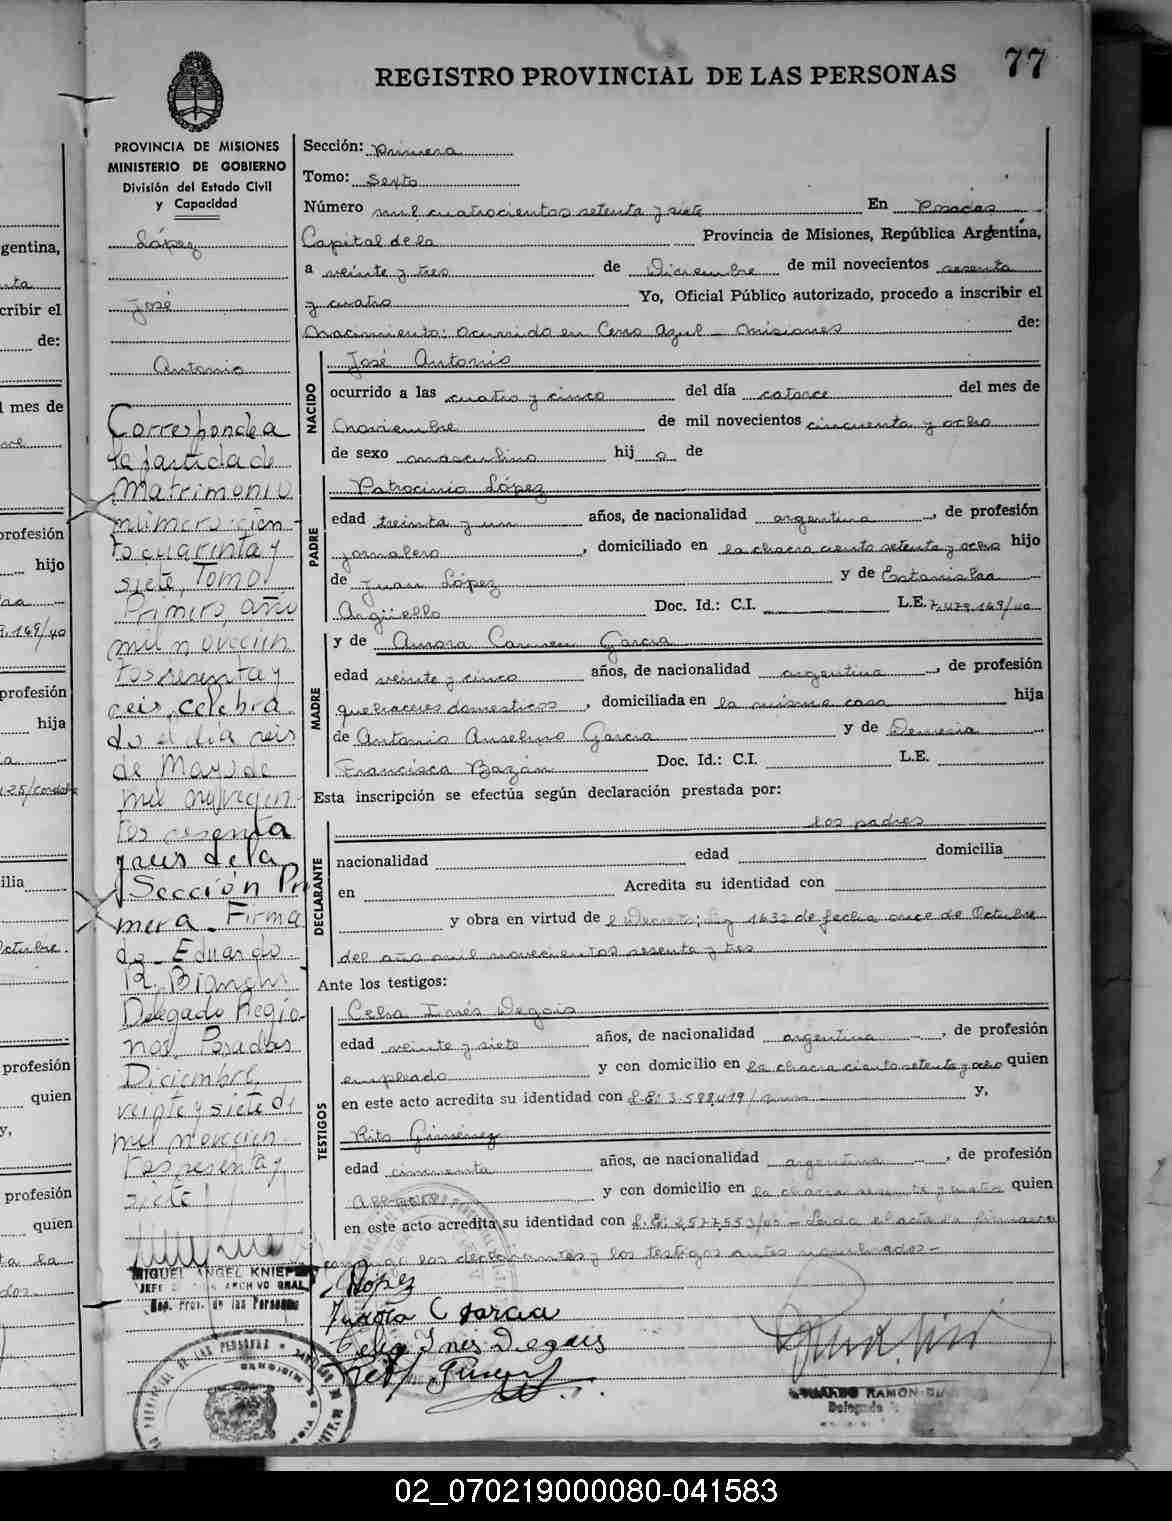 77
REGISTRO PROVINCIAL DE LAS PERSONAS
PROVINCIA DE MISIONES
MINISTERIO DE GOBIERNO
División del Estado Civil
y Capacidad
López
José
Antonio
Corresponde a
la partida de
Matrimonio
número cien
to cuarinta y
siete, Tomo
Primero, año
mil novecien
tos sesenta y
seis, celebra
do el dia seis
de Mayo de
mil novecien-
tos sesenta
y seis de la
Sección Pri
mera. Firma
do Eduardo
R. Bianchi
Delegado Regio-
nal. Posadas
Diciembre,
veinte y siete de
mil novecien
tos sesenta y
siete
MIGUEL ANGEL KNIEP
ARCHIVO GRAL
Reg. Prov. de las Personas
Sección: Primera
Tomo: Sexto
Número mil cuatrocientos setenta y siete En Posadas
Capital de la Provincia de Misiones, República Argentina,
a veinte y tres de Diciembre de mil novecientos sesenta
y cuatro Yo, Oficial Público autorizado, procedo a inscribir el
nacimiento: ocurrido en Cerro Azul - Misiones de:
NACIDO
José Antonio
ocurrido a las cuatro y cinco del día catorce del mes de
Noviembre de mil novecientos cincuenta y ocho
de sexo masculino hij o de
PADRE
Patrocinio López
edad treinta y un años, de nacionalidad argentina, de profesión
jornalero, domiciliado en la chacra ciento setenta y ocho hijo
de Juan López y de Estanislaa
Argüello Doc. Id.: C.I. L.E. 7.479.169/40
MADRE
y de Aurora Carmen Garcia
edad veinte y cinco años, de nacionalidad argentina, de profesión
quehaceres domesticos, domiciliada en la misma casa hija
de Antonio Anselmo Garcia y de Demesia
Francisca Bazán Doc. Id.: C.I. L.E.
Esta inscripción se efectúa según declaración prestada por:
DECLARANTE
los padres
nacionalidad edad domicilia
en Acredita su identidad con
y obra en virtud de l Decreto; Ley 1632 de fecha once de Octubre
del año mil novecientos sesenta y tres
Ante los testigos:
TESTIGOS
Celia Inés Degois
edad veinte y siete años, de nacionalidad argentina, de profesión
empleado y con domicilio en la chacra ciento setenta y ocho quien
en este acto acredita su identidad con L.E: 3.588.419/ y,
Rito Giménez
edad cincuenta años, de nacionalidad argentina, de profesión
y con domicilio en la chacra sesenta y cuatro quien
en este acto acredita su identidad con L.E: 2.577.553/ - Leida el acta la firmaron
conmigo los declarantes y los testigos antes nombrados-
López
Aurora C Garcia
Celia Ines Degois
EDUARDO RAMON
Delegado
02_070219000080-041583